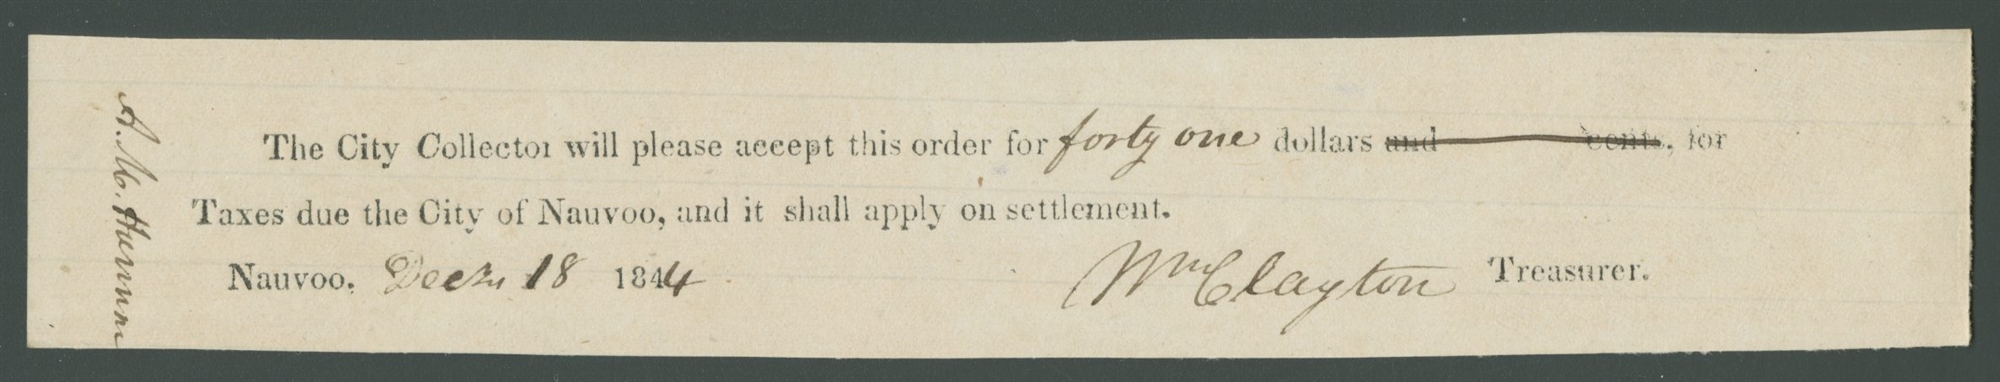 The City Collector will please accept this order for forty one dollars and cents, for
Taxes due the City of Nauvoo, and it shall apply on settlement.
Nauvoo, Decr. 18 1844 Wm Clayton Treasurer.
A. M.